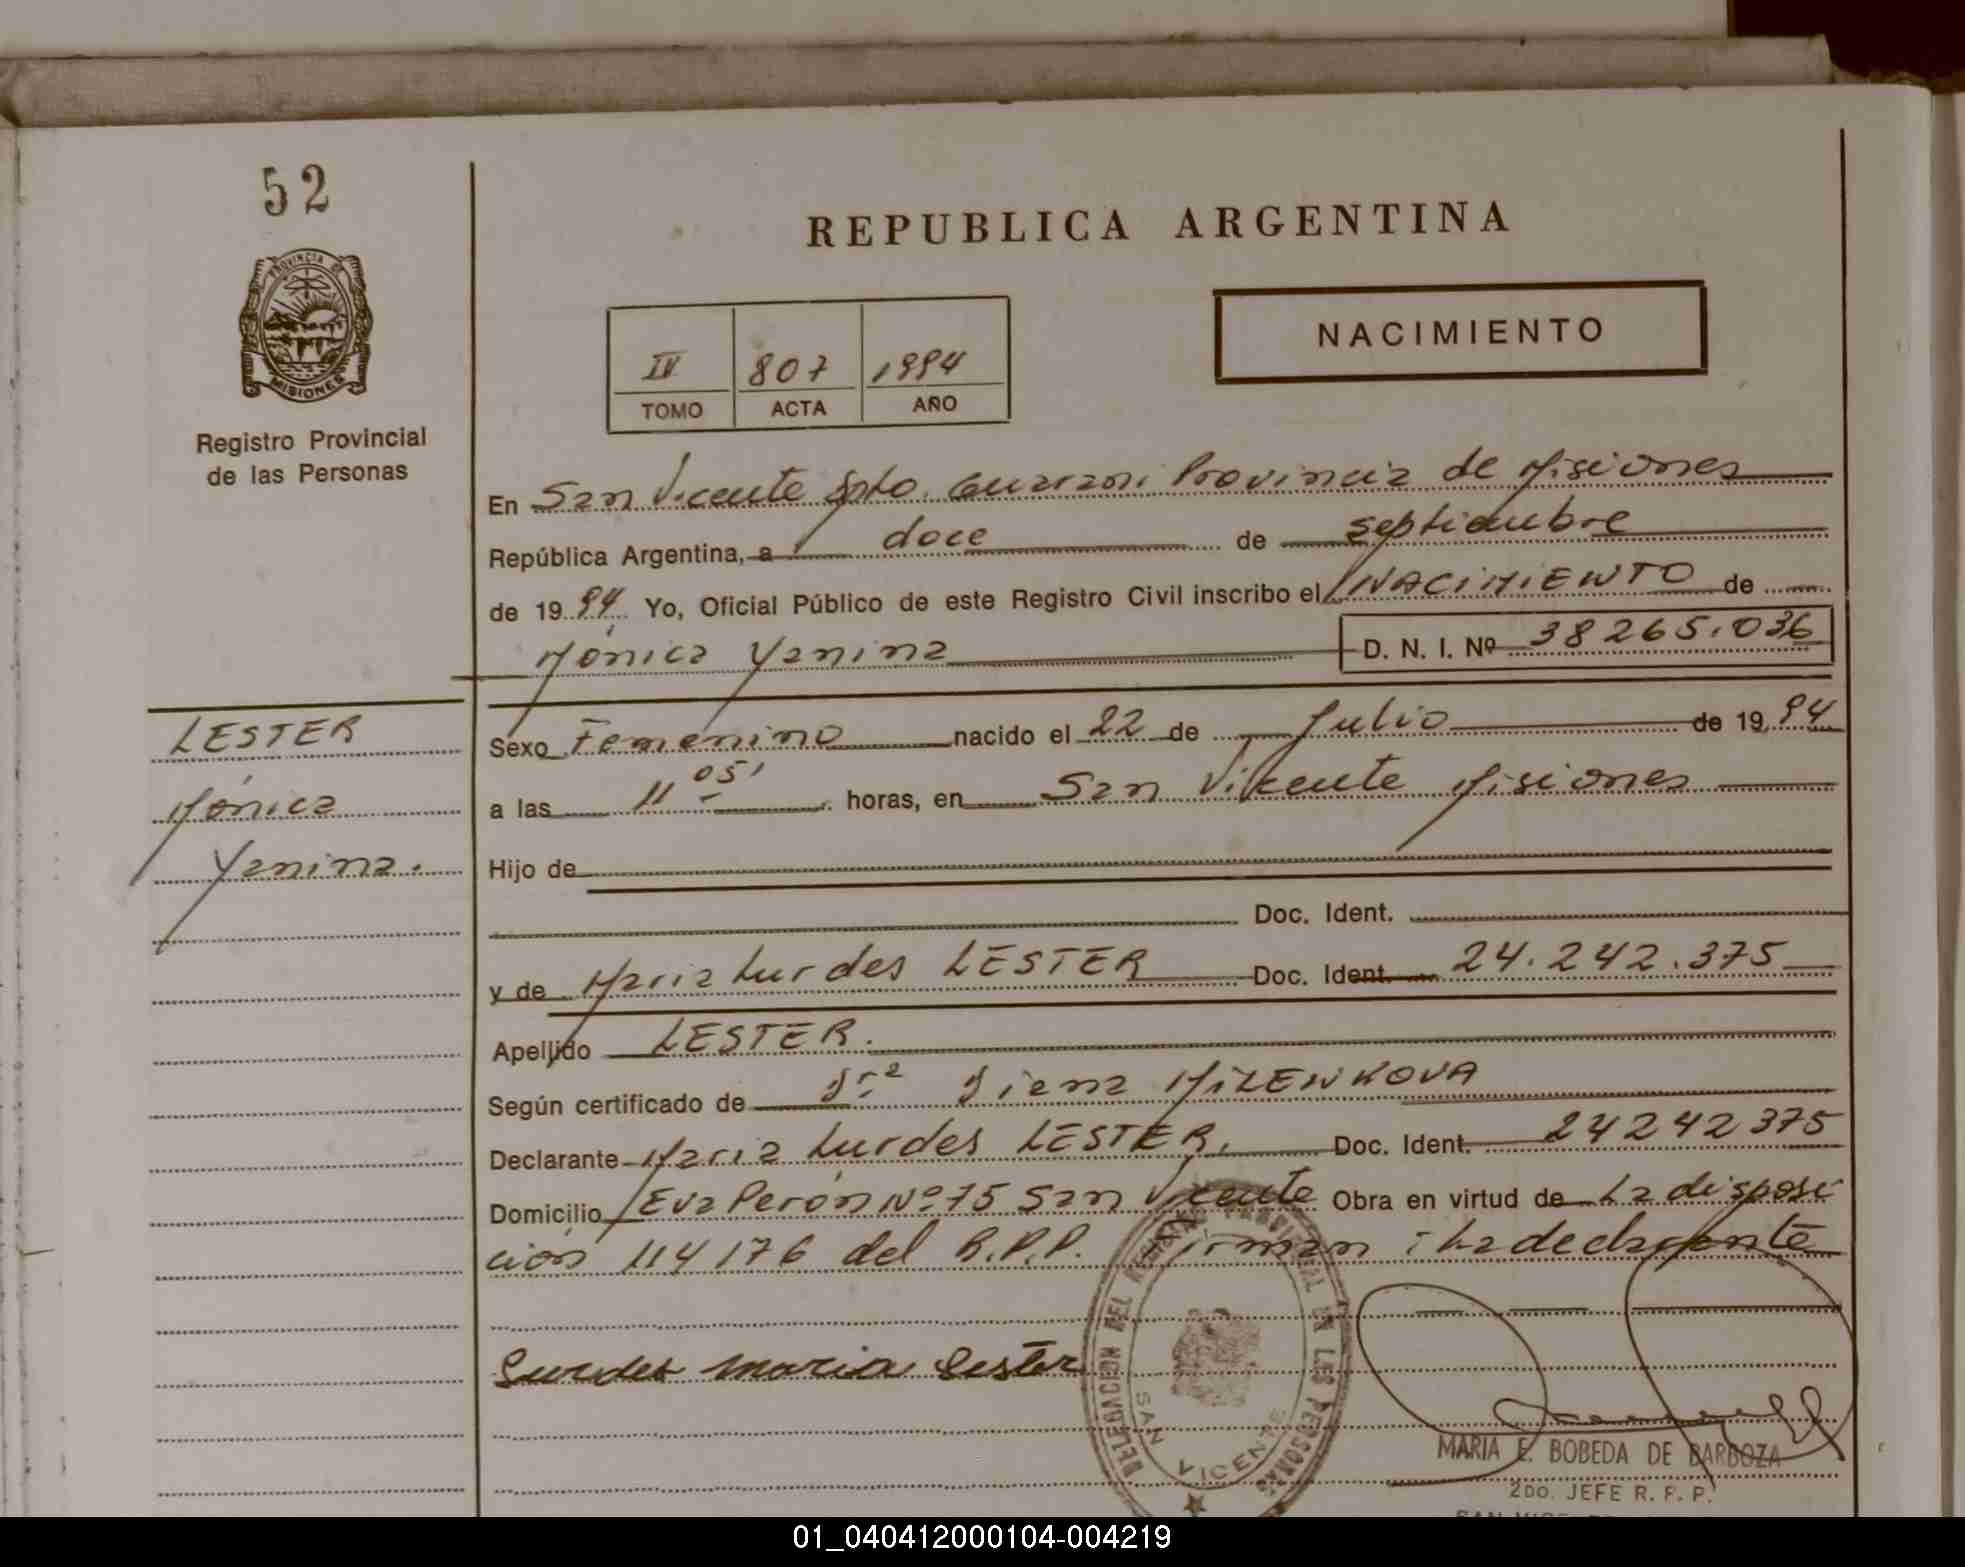 52
REPUBLICA ARGENTINA
PROVINCIA DE
MISIONES
NACIMIENTO
IV 807 1994
TOMO ACTA AÑO
Registro Provincial
de las Personas
En San Vicente Dpto. Guarani Provincia de Misiones
República Argentina, a doce de septiembre
de 1994 Yo, Oficial Público de este Registro Civil inscribo el NACIMIENTO de
Mónica Yanina D. N. I. Nº 38265.036
LESTER
Mónica
Yanina.
Sexo Femenino nacido el 22 de Julio de 1994
a las 11 05' horas, en San Vicente Misiones
Hijo de
Doc. Ident.
y de Maria Lurdes LESTER Doc. Ident. 24.242.375
Apellido LESTER.
Según certificado de Dra Diana MILENKOVA
Declarante Maria Lurdes LESTER. Doc. Ident. 24242375
Domicilio Eva Perón Nº 75 San Vicente Obra en virtud de La disposi
ción 114176 del R.P.P. Firman: La declarante
Lurdes Maria Lester
DELEGACION DEL REGISTRO PROVINCIAL DE LAS PERSONAS
SAN VICENTE
MARIA E. BOBEDA DE BARBOZA
2DO. JEFE R. P. P.
01_040412000104-004219